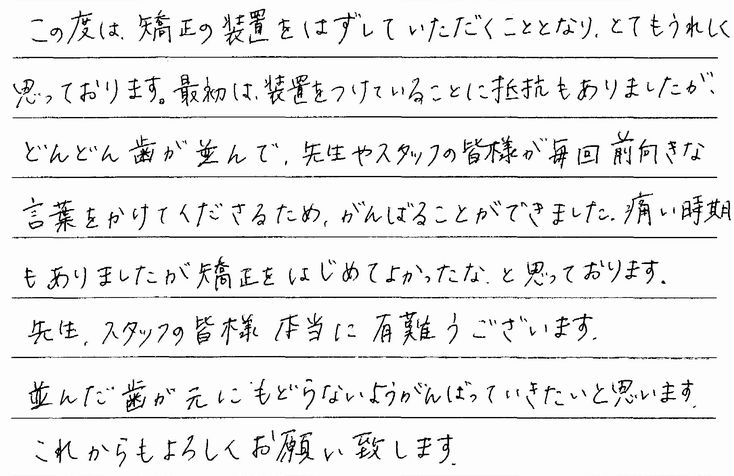 この度は、矯正の装置をはずしていただくこととなり、とてもうれしく
思っております。最初は、装置をつけていることに抵抗もありましたが、
どんどん歯が並んで、先生やスタッフの皆様が毎回前向きな
言葉をかけてくださるため、がんばることができました。痛い時期
もありましたが矯正をはじめてよかったな、と思っております。
先生、スタッフの皆様 本当に有難うございます。
並んだ歯が元にもどらないようがんばっていきたいと思います。
これからもよろしくお願い致します。